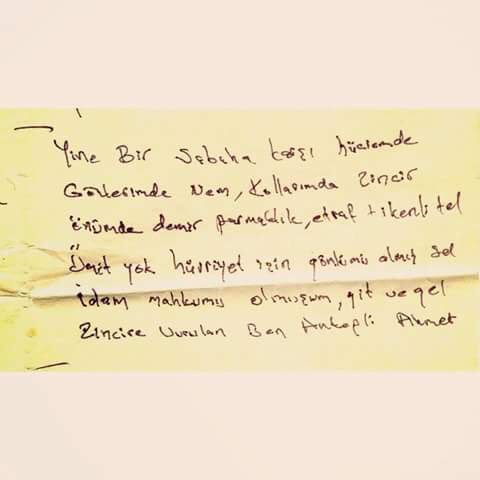 Yine Bir Sabaha karşı hücremde
Gözlerimde Nem, Kollarımda Zincir
önümde demir parmaklık, etraf tikenli tel
Ümit yok hürriyet için gönlümü almış sel
İdam mahkumu olmuşum, git ve gel
Zincire Vurulan Ben Ahmet